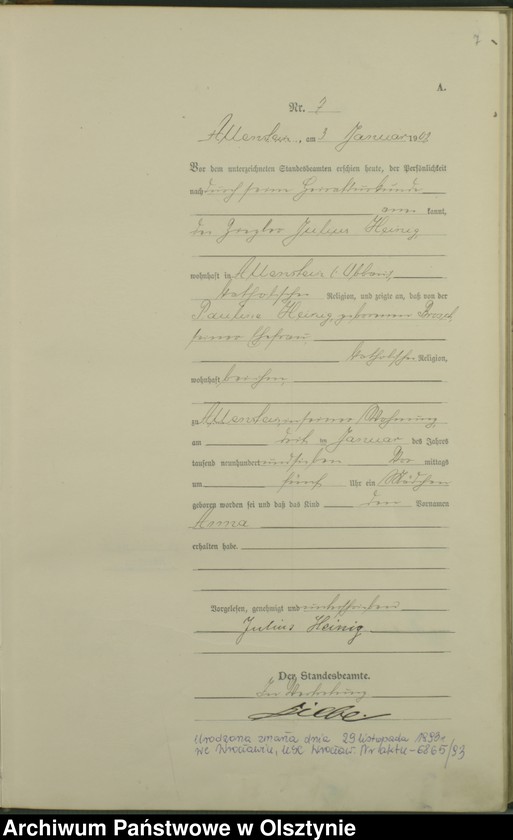 7
A.
Nr. 7
Allenstein, am 3 Januar 1907
Vor dem unterzeichneten Standesbeamten erschien heute, der Persönlichkeit
nach durch seine Heiratsurkunde
aner kannt,
der Ziegler Julius Heinig
wohnhaft in Allenstein
katholischer Religion, und zeigte an, daß von der
Pauline Heinig, geborenen
seiner Ehefrau,
katholischer Religion,
wohnhaft bei ihm,
zu Allenstein in seiner Wohnung
am Januar des Jahres
tausend neunhundert und sieben Vor mittags
um fünf Uhr ein Mädchen
geboren worden sei und daß das Kind den Vornamen
Anna
erhalten habe.
Vorgelesen, genehmigt und unterschrieben
Julius Heinig
Der Standesbeamte.
In Vertretung
Urodzona zmarła dnia 29 listopada 1993r
we Wrocławiu, USC Wrocław Nr aktu - 6865/93
Archiwum Państwowe w Olsztynie